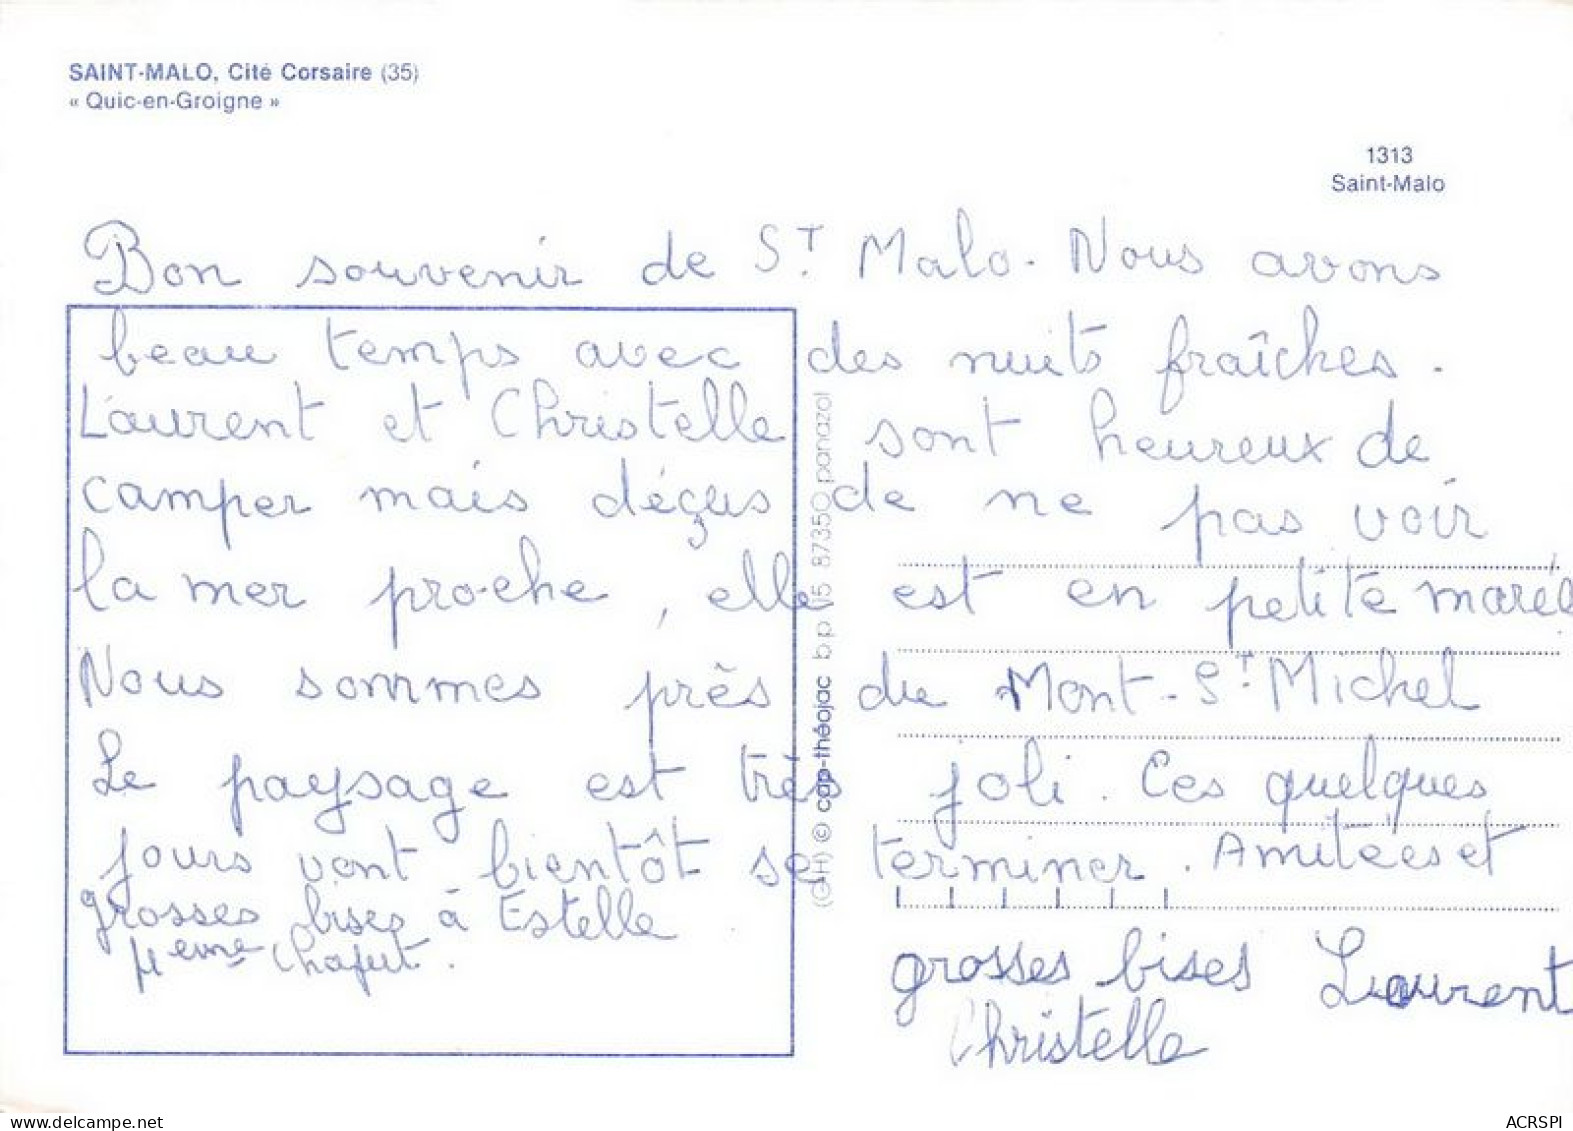 SAINT-MALO, Cité Corsaire (35)
« Quic-en-Groigne »
1313
Saint-Malo
Bon souvenir de St. Malo. Nous avons
beau temps avec des nuits fraîches.
Laurent et Christelle sont heureux de
camper mais déçus de ne pas voir
la mer proche, elle est en petite marée
Nous sommes près du Mont-St. Michel
Le paysage est très joli. Ces quelques
jours vont bientôt se terminer. Amitées et
grosses bises à Estelle
Meme Chaput.
grosses bises Laurent
Christelle
(GH) © cap-théojac bp 15 87350 panazol
www.delcampe.net
ACRSPI